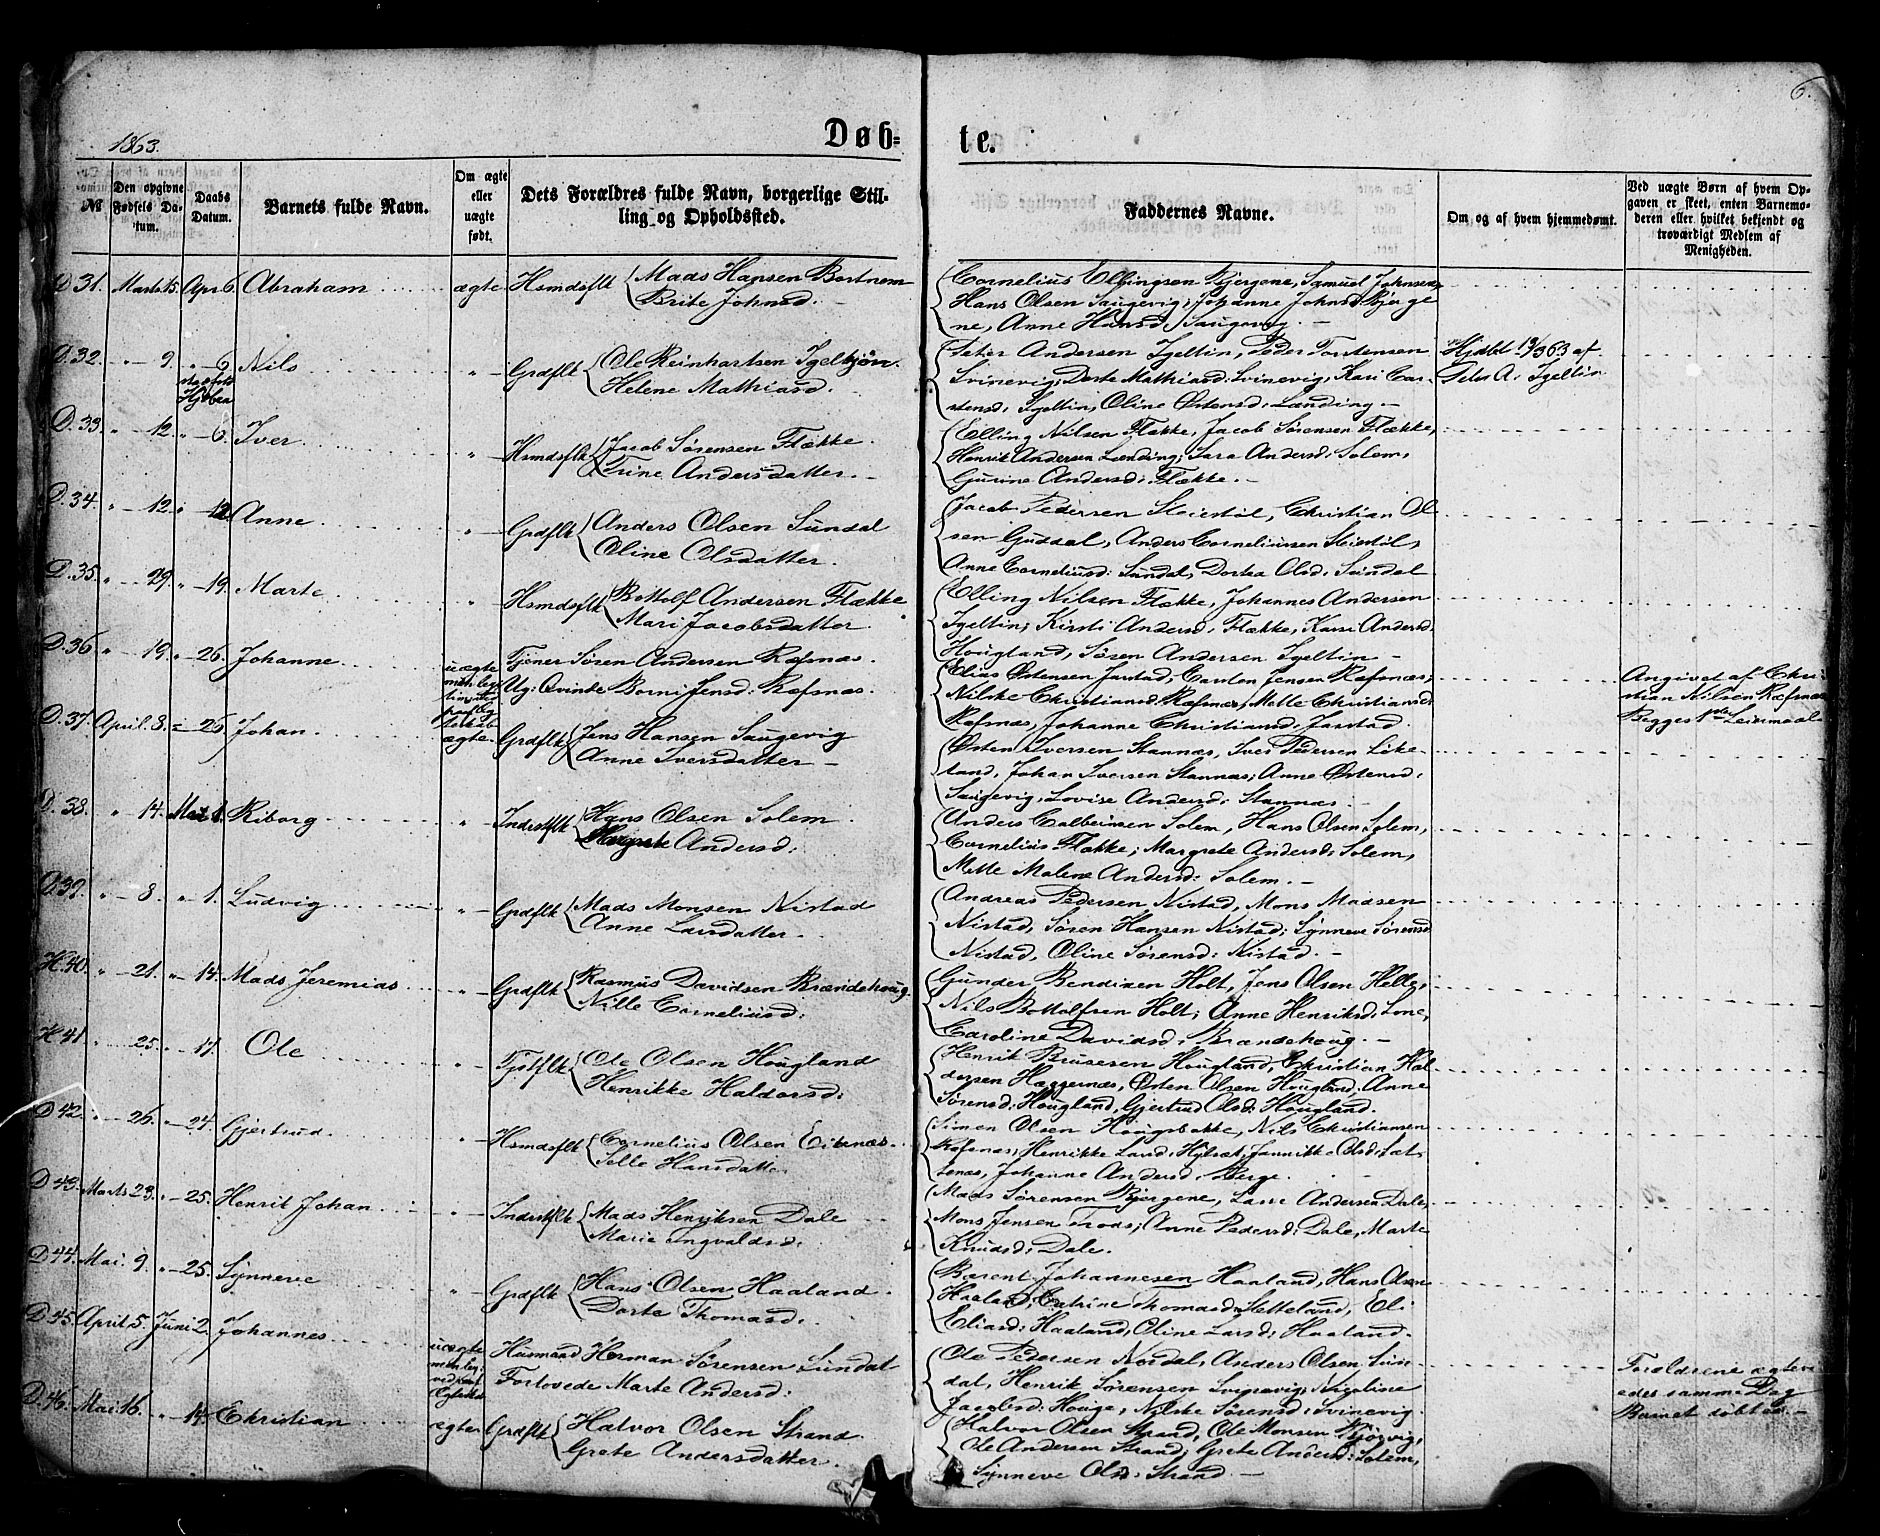 6.
1863.
Døb=
te.
№
Den opgivne Fødsels Datum.
Daabs Datum.
Barnets fulde Navn.
Om ægte eller uægte født.
Dets Forældres fulde Navn, borgerlige Stilling og Opholdssted.
Faddernes Navne.
Om og af hvem hjemmedøbt.
Ved uægte Børn af hvem Opgaven er skeet, enten Barnemoderen eller hvilket bekjendt og troværdigt Medlem af Menigheden.
D 31. Marts 15. Apr 6. Abraham ægte Hsmdsflk Mads Hansen Bortnem
Brite Johnsd.
Cornelius Ellingsen Bjergene, Samuel Johnsen,
Hans Olsen Saugevig; Johanne Johnsd Bjerge
ne, Anne Hansd, Saugevig. —
D. 32. " — 9. " — 6. Nils " Grdflk Ole Reinhartsen Igeltjøn.
Helene Mathiasd.
Peter Andersen Igeltin, Peder Torstensen
Svinevig; Dorte Mathiasd: Svinevig, Kari Car-
stensd: Igeltin, Oline Østensd: Lænding —
Hjdbt 19/3 63 af
Peter A. Igeltin
D. 33. " — 12. " — 6. Iver " Hsmdsflk Jacob Sørensen Flække.
Trine Andersdatter. —
Elling Nilsen Flække, Jacob Sørensen Flække,
Henrik Andersen Lænding; Sara Andersd: Solem,
Gurine Andersd: Flække. —
D. 34. " — 12. " — 12. Anne " Grdflk Anders Olsen Sundal
Oline Olsdatter.
Jacob Pedersen Steiestøl, Christian Ol
sen Guddal, Anders Corneliussen Steiestøl,
Anne Corneliusd: Sundal, Dortea Olsd: Sundal
D. 35. " — 29. " — 19. Marte " Hsmdsflk Bottolf Andersen Flække
Mari Jacobsdatter.
Elling Nilsen Flække, Johannes Andersen
Igeltin; Kirsti Andersd: Flække, Kari Andersd:
Hougland, Søren Andersen Igeltin —
D. 36. " — 19. " — 26. Johanne uægte Tjener Søren Andersen Ræfsnæs.
Ug: Qvinde Borni Jensd: Ræfsnæs.
Elias Østensen Jarstad, Carsten Jensen Ræfsnæs;
Nilske Christiansd: Ræfsnæs, Mette Christiansd:
Ræfsnæs, Johanne Christiansd: Jarstad.
Angivet af Chri-
stian Nilsen Ræfsnæs
Begges 1ste Leiermaal
D. 37. April. 8. " — 26. Johan. ægte Grdflk Jens Hansen Saugevig
Anne Iversdatter —
Østen Iversen Stannæs, Iver Pedersen Like-
land, Johan Iversen Stannæs; Anne Østensd:
Saugevig, Lovise Andersd: Stannæs. —
D. 38. " — 14. Mai 1. Riborg " Inderstflk Hans Olsen Solem.
Margrete Andersd:
Anders Colbeinsen Solem, Hans Olsen Solem,
Cornelius Flække; Margrete Andersd: Solem,
Mette Malene Andersd: Solem. —
D. 39. " — 8. " — 1. Ludvig " Grdflk Mads Monsen Nistad
Anne Larsdatter.
Andreas Pedersen Nistad, Mons Madsen
Nistad, Søren Hansen Nistad; Synneve Sørensd
Nistad, Oline Sørensd: Nistad. —
H. 40. " — 21. " — 14. Mads Jeremias " Grdflk Rasmus Davidsen Brændehoug.
Nille Corneliusd:
Gunder Bendixen Holt, Jens Olsen Helle,
Nils Bottolfsen Holt; Anne Henriksd: Lone,
Caroline Davidsd: Brændehoug. —
H 41 " 25. " — 17. Ole " Tjstflk Ole Olsen Hougland
Henrikke Haldorsd:
Henrik Brusesen Hougland, Christian Hal
dorsen Hæggernæs, Østen Olsen Hougland; Anne
Sørensd: Hougland, Gjertrud Olsd: Hougland.
D 42. " — 26. " — 24. Gjertrud. " Hsmdsflk Cornelius Olsen Eitenæs.
Selle Hansdatter
Simon Olsen Hougsbakke, Nils Christiansen
Ræfsnæs, Henrikke Larsd: Hylsæt, Jannikke Olsd:
Johanne Andersd: Berge.
D 43. Marts 23. " — 25. Henrik Johan " Inderstflk Mads Henriksen Dale
Marie Ingvaldsd:
Mads Sørensen Bjørgene, Lasse Andersen Dale,
Mons Jensen; Anne Pedersd: Dale, Marte
Knudsd: Dale.
D 44. Mai. 9. " — 25. Synneve " Grdflk Hans Olsen Haaland.
Dorte Thomasd:
Bærent Johannesen Haaland, Hans Olsen
Haaland; Catrine Thomasd: Sætteland, Eli
Eliasd: Haaland, Oline Larsd: Haaland.
D 45. April 5. Juni 2. Johannes uægte Husmand Herman Sørensen Sundal
Forlovede Marte Andersd:
Ole Pedersen Nordal, Anders Olsen Sun-
dal, Henrik Sørensen Svinevig; Nigeline
Jacobsd: Houge, Nilske Sørensd: Svinevig.
Forældrene ægtevi-
edes samme Dag
Barnet døbtes. —
D. 46. Mai 16. " — 14. Christian ægte Grdflk Halvor Olsen Strand.
Grete Andersdatter.
Halvor Olsen Strand, Ole Monsen,
Ole Andersen Strand; Grete Andersd: Solem,
Synneve Olsd: Strand —